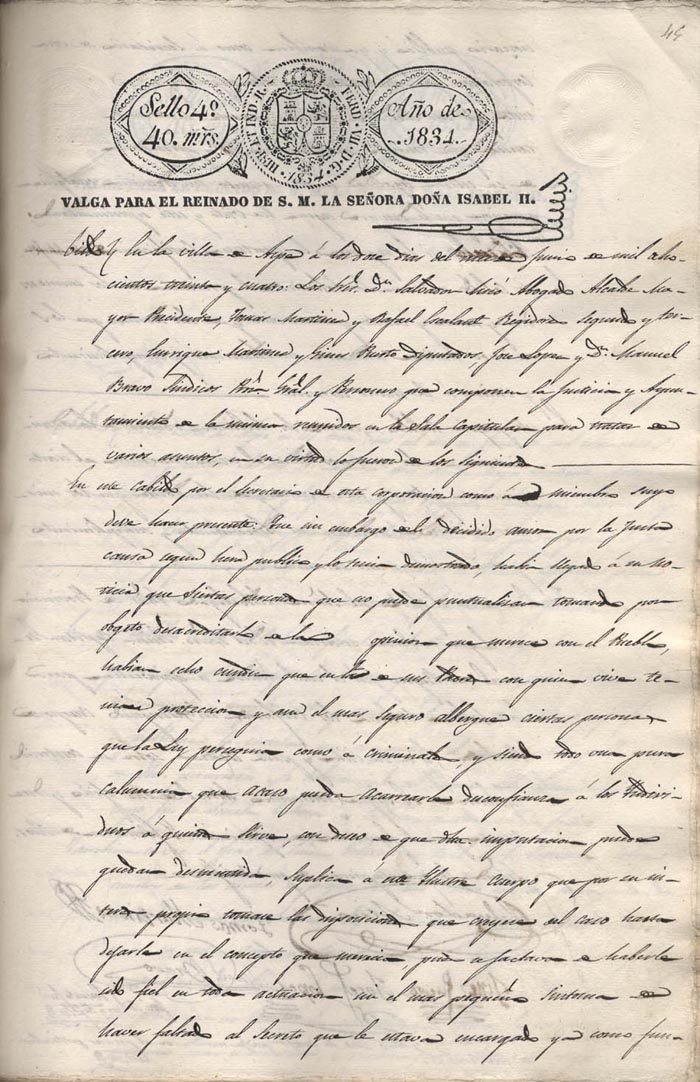 45
Sello 4º
40. mrs.
HISP. ET IND. R. FERD. VII. D. G. 1834.
Año de
1834.
VALGA PARA EL REINADO DE S. M. LA SEÑORA DOÑA ISABEL II.
En la villa de Aspe á los doce dias del mes de Junio de mil ocho-
cientos treinta y cuatro: Los Sres. Dn. Salvador Miró Abogado Alcalde Ma-
yor Presidente, Tomas Martinez y Rafael Regidores segundo y ter-
cero, Enrique Martinez y Gines Diputados, Jose Lopez y Dn. Manuel
Bravo Sindicos Pror. Gral. y Personero que componen la Justicia y Ayun-
tamiento de la misma reunidos en la Sala Capitular para tratar de
varios asuntos, en su virtud lo fueron de los siguientes
En este cabildo por el Secretario de esta corporacion como a miembro suyo
deve hacer presente: Que sin embargo del decidido amor por la Justa
causa segun hera publico y lo tenia demostrado, habia llegado a su no-
ticia que siertas personas que no puede puntualizar tomando por
obgeto desacreditarle de la opinion que merece con el Pueblo,
habian echo cundir que en la de sus Padres con quien vive te-
nian proteccion y aun el mas seguro albergue ciertas personas
que la Ley como á criminales, y siendo todo una pura
calumnia que acaso pueda acarrearle desconfianza á los Yndivi-
duos á quienes Sirve, con deseo de que dha. imputacion puede
quedar desmentida, Suplica á este Ylustre Cuerpo que por su in-
teres propio tomase las disposiciones que creyese del caso hasta
dejarle en el concepto que merecia, pues se jactava de haberle
sido fiel en toda actuacion sin el mas pequeño sintoma de
haver faltado al Secreto que le estava encargado ya como fun-